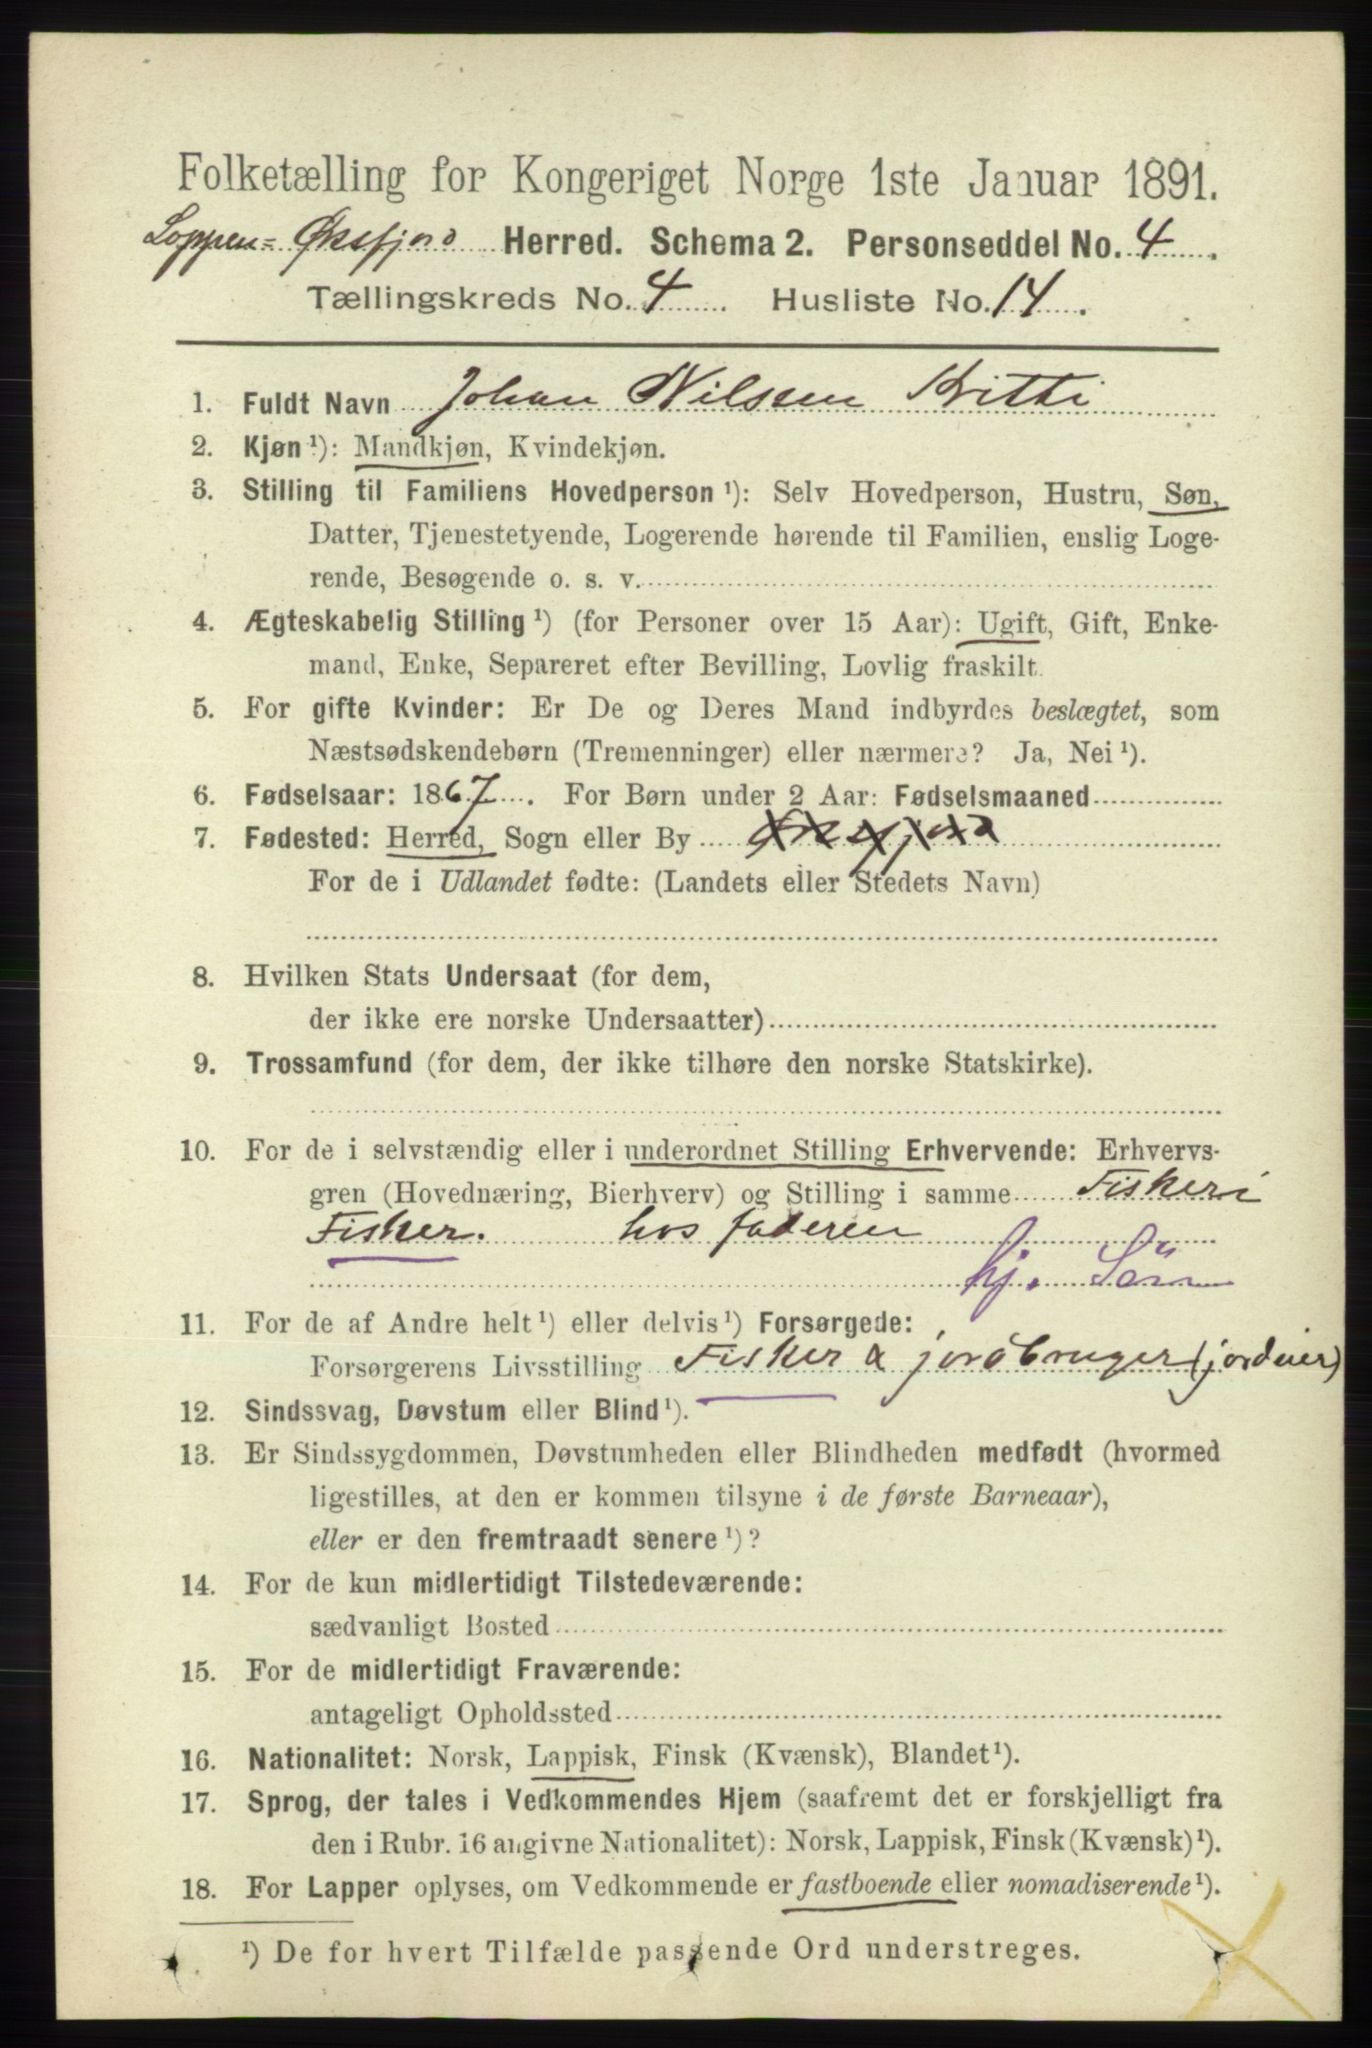 Folketælling for Kongeriget Norge 1ste Januar 1891.
Loppen = Øksfjord Herred. Schema 2. Personseddel No. 4.
Tællingskreds No. 4. Husliste No. 14.
1. Fuldt Navn Johan Nilsen Britti
2. Kjøn ¹): Mandkjøn, Kvindekjøn.
3. Stilling til Familiens Hovedperson ¹): Selv Hovedperson, Hustru, Søn,
Datter, Tjenestetyende, Logerende hørende til Familien, enslig Loge-
rende, Besøgende o. s. v.
4. Ægteskabelig Stilling ¹) (for Personer over 15 Aar): Ugift, Gift, Enke-
mand, Enke, Separeret efter Bevilling, Lovlig fraskilt.
5. For gifte Kvinder: Er De og Deres Mand indbyrdes beslægtet, som
Næstsødskendebørn (Tremenninger) eller nærmere? Ja, Nei ¹).
6. Fødselsaar: 1867. For Børn under 2 Aar: Fødselsmaaned
7. Fødested: Herred, Sogn eller By Øksfjord
For de i Udlandet fødte: (Landets eller Stedets Navn)
8. Hvilken Stats Undersaat (for dem,
der ikke ere norske Undersaatter)
9. Trossamfund (for dem, der ikke tilhøre den norske Statskirke).
10. For de i selvstændig eller i underordnet Stilling Erhvervende: Erhvervs-
gren (Hovednæring, Bierhverv) og Stilling i samme Fiskeri
Fisker. hos faderen
hj. Sön
11. For de af Andre helt ¹) eller delvis ¹) Forsørgede:
Forsørgerens Livsstilling Fisker & jordbruger (jordeier)
12. Sindssvag, Døvstum eller Blind ¹).
13. Er Sindssygdommen, Døvstumheden eller Blindheden medfødt (hvormed
ligestilles, at den er kommen tilsyne i de første Barneaar),
eller er den fremtraadt senere ¹)?
14. For de kun midlertidigt Tilstedeværende:
sædvanligt Bosted
15. For de midlertidigt Fraværende:
antageligt Opholdssted
16. Nationalitet: Norsk, Lappisk, Finsk (Kvænsk), Blandet ¹).
17. Sprog, der tales i Vedkommendes Hjem (saafremt det er forskjelligt fra
den i Rubr. 16 angivne Nationalitet): Norsk, Lappisk, Finsk (Kvænsk) ¹).
18. For Lapper oplyses, om Vedkommende er fastboende eller nomadiserende ¹).
¹) De for hvert Tilfælde passende Ord understreges.